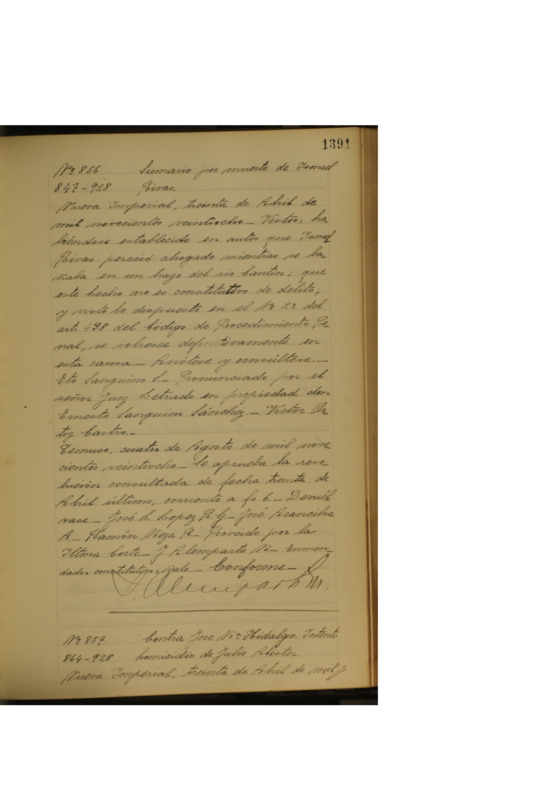 1391
Nº 856 Sumario por muerte de Ismael
847-928 Rivas.
Nueva Imperial, treinta de Abril de
mil novecientos veintiocho.- Vistos: ha
biéndose establecido en autos que Ismael
Rivas pereció ahogado mientras se ba
ñaba en un brazo del rio Cautin; que
este hecho no es constitutivo de delito,
y visto lo dispuesto en el Nº 2º del
art. 438 del Código de Procedimiento Pe
nal, se sobresee definitivamente en
esta causa.- Anótese y consúltese.-
Eto Sanguino S.- Pronunciado por el
señor Juez Letrado en propiedad don
Ernesto Sanguino Sánchez.- Victor Or
tiz Castro.-
Temuco, cuatro de Agosto de mil nove
cientos veintiocho.- Se aprueba la reso
lución consultada de fecha treinta de
Abril último, corriente a fs 6.- Devuél
vase.- José L. Lopez R. G.- José Arancibia
A.- Ramón Vega R.- Proveido por la
Iltma Corte.- J. Alemparte
dado: constitutivo, vale.- Conforme.-
Nº 857 Contra Jose Hidalgo. Intento
864-928 homicidio de Julio
Nueva Imperial, treinta de Abril de mil